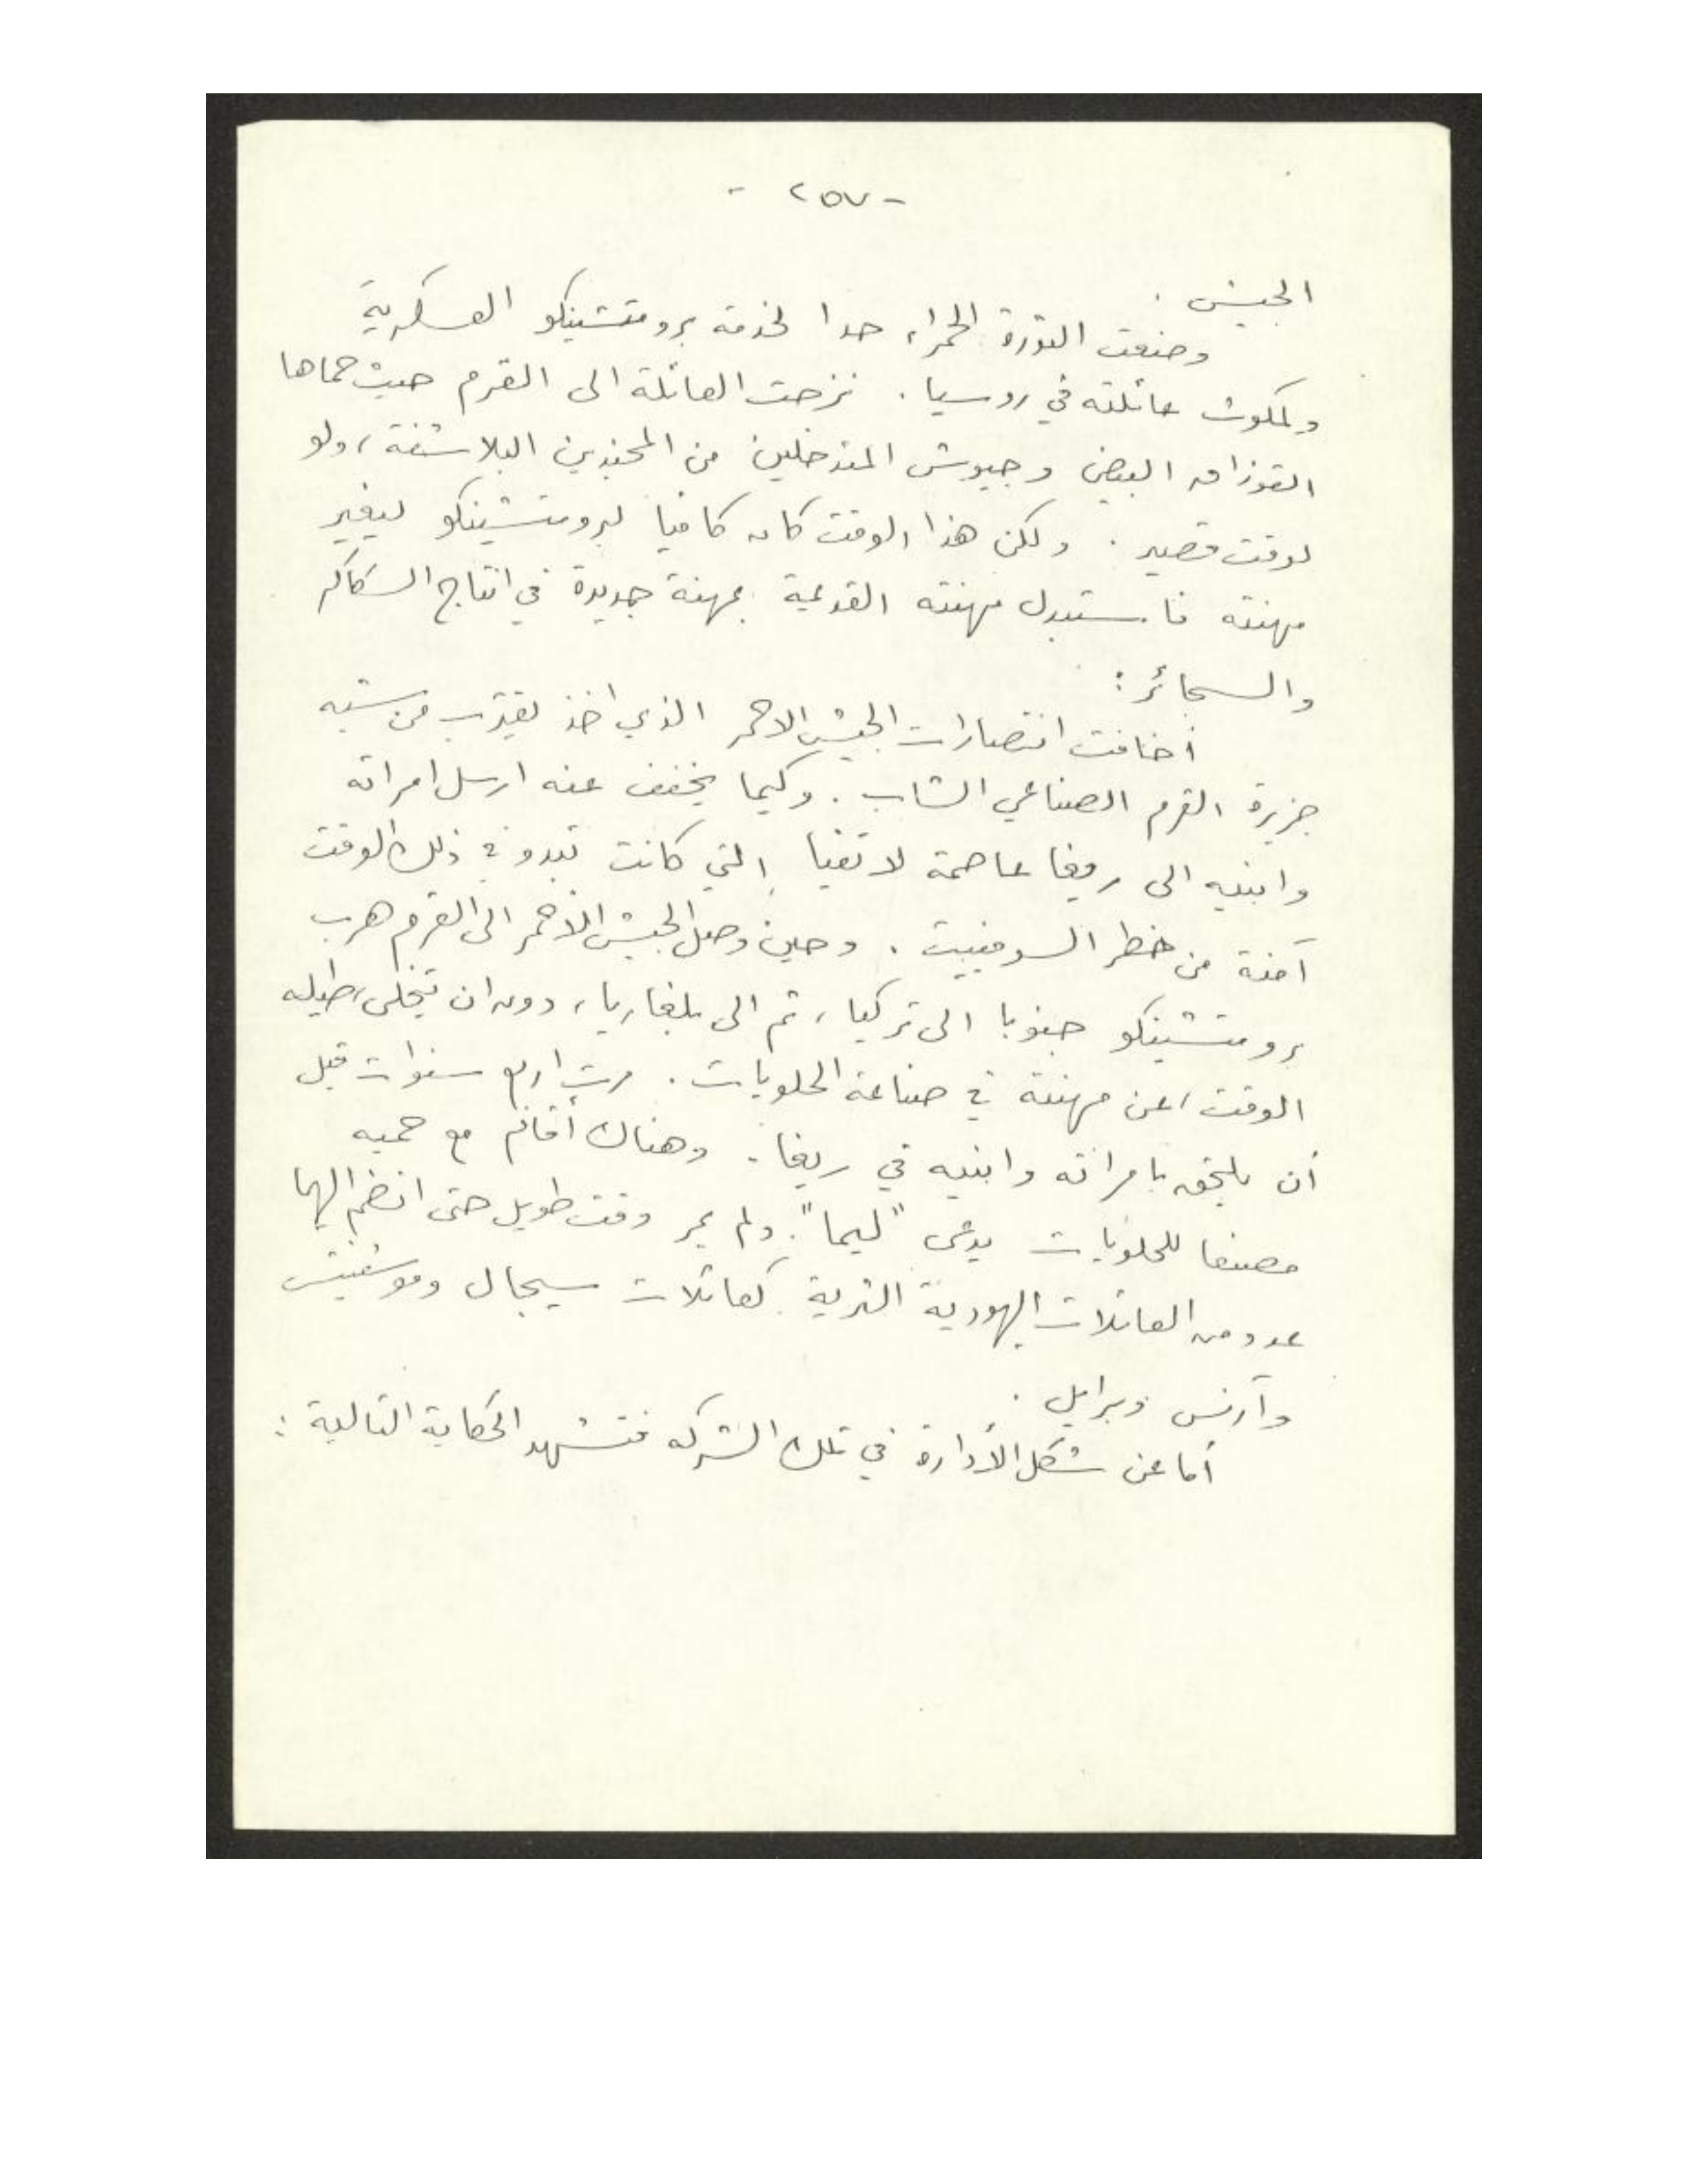 - ٢٥٧ -
الجيش .
وضعت الثورة الحمراء حدا لخدمة برومتشينكو العسكرية
ولمكوث عائلته في روسيا . نزحت العائلة الى القرم حيث حماها
القوزاق البيض وجيوش المتدخلين من المجندين البلاشفة ، ولو
لوقت قصير . ولكن هذا الوقت كان كافيا لبرومتشينكو ليغير
مهنته فاستبدل مهنته القديمة بمهنة جديدة في انتاج السكاكر
والسجائر :
أخافت انتصارات الجيش الاحمر الذي اخذ يقترب من شبه
جزيرة القرم الصناعي الشاب . وكيما يخفف عنه ارسل امراته
وابنيه الى ريغا عاصمة لاتفيا التي كانت تبدو في ذلك الوقت
آمنة من خطر السوفييت . وحين وصل الجيش الأحمر الى القرم هرب
برومتشينكو جنوبا الى تركيا ، ثم الى بلغاريا ، دون ان يتخلى ، طيله
الوقت ، عن مهنته في صناعة الحلويات . مرت اربع سنوات قبل
أن يلتحق بامراته وابنيه في ريغا . وهناك أقام مع حميه
مصنعا للحلويات يدعى "ليما" . ولم يمر وقت طويل حتى انضم اليهما
عدد من العائلات اليهودية الثرية كعائلات سيجال وموشفيتس
وآرنس وبرايل .
أما عن شكل الأدارة في تلك الشركه فتشهد الحكاية التالية :